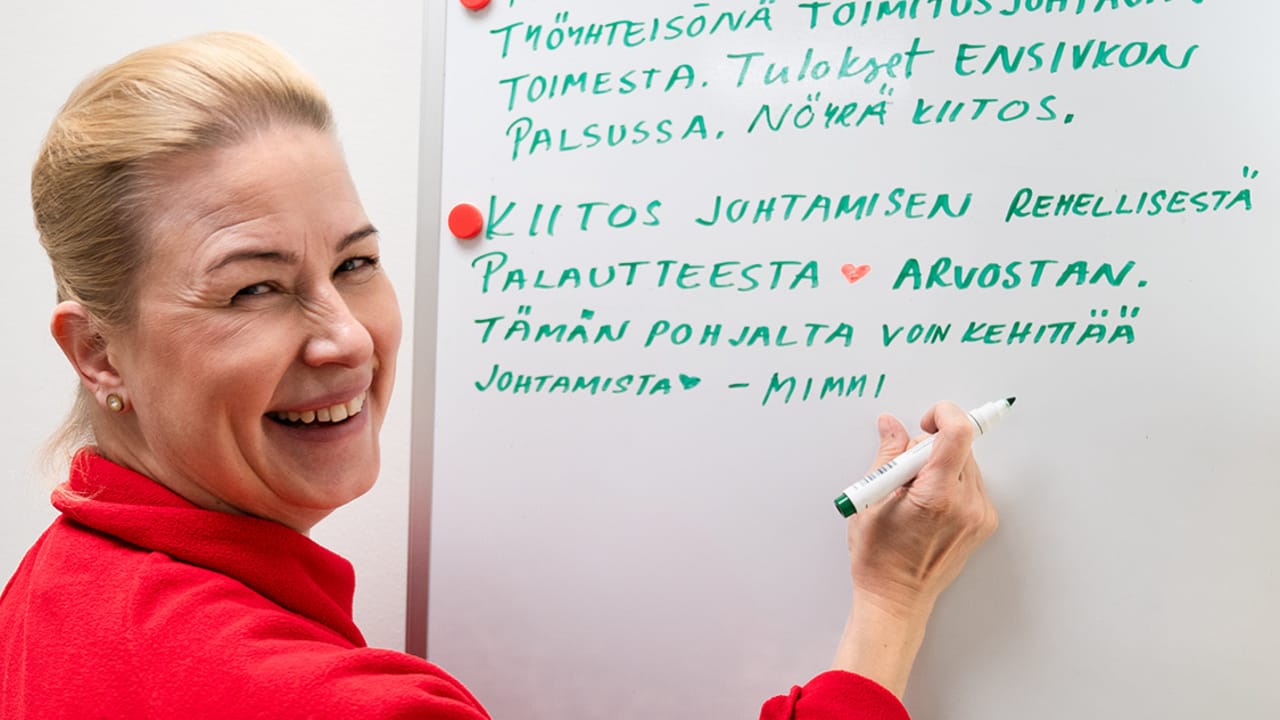 TYÖYHTEISÖNÄ TOIMITUSJOHTAJAN
TOIMESTA. Tulokset ENSIVKON
PALSUSSA. NÖYRÄ KIITOS.
KIITOS JOHTAMISEN REHELLISESTÄ
PALAUTTEESTA ❤ ARVOSTAN.
TÄMÄN POHJALTA VOIN KEHITTÄÄ
JOHTAMISTA ♥ – MIMMI